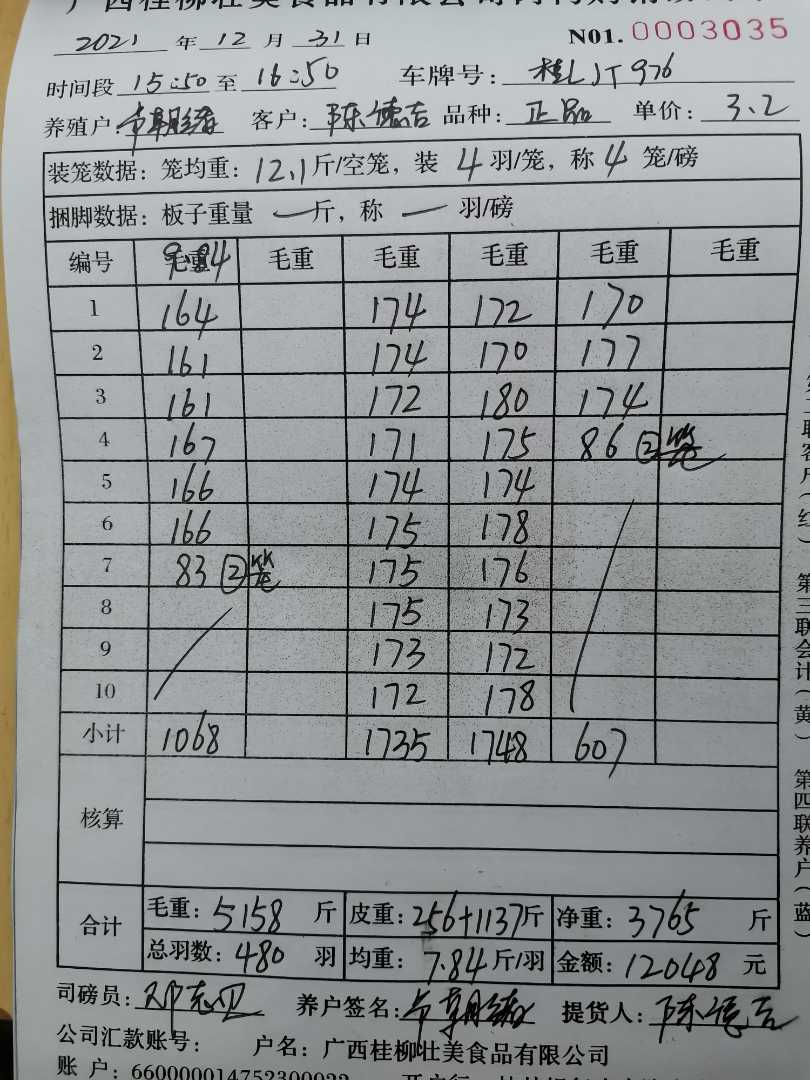 2021 年 12 月 31 日 N01. 0003035
时间段 15:50 至 16:50 车牌号: 桂LJT976
养殖户: 客户: 陈德吉 品种: 正品 单价: 3.2
装笼数据: 笼均重: 12.1斤/空笼, 装 4 羽/笼, 称 4 笼/磅
捆脚数据: 板子重量 一斤, 称 一 羽/磅
编号 毛重 毛重 毛重 毛重 毛重 毛重
1 164 174 172 170
2 161 174 170 177
3 161 172 180 174
4 167 171 175 86 ②笼
5 166 174 174
6 166 175 178
7 83 ②笼 175 176
8 175 173
9 173 172
10 172 178
小计 1068 1735 1748 607
核算
合计 毛重: 5158 斤 皮重: 256+1137斤 净重: 3765 斤
总羽数: 480 羽 均重: 7.84斤/羽 金额: 12048 元
司磅员: 养户签名: 提货人: 陈德吉
公司汇款账号: 户名: 广西桂柳壮美食品有限公司
账 户: 660000014752300022
联客户(红) 第三联会计(黄) 第四联养户(蓝)